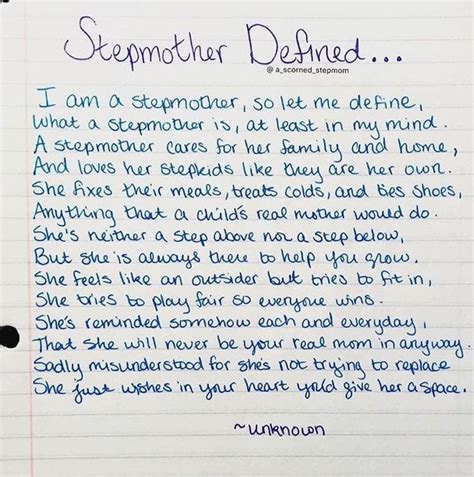 Stepmother Defined...
@a_scorned_stepmom
I am a stepmother, so let me define,
What a stepmother is, at least in my mind.
A stepmother cares for her family and home,
And loves her stepkids like they are her own.
She fixes their meals, treats colds, and ties shoes,
Anything that a child's real mother would do.
She's neither a step above nor a step below,
But she is always there to help you grow.
She feels like an outsider but tries to fit in,
She tries to play fair so everyone wins.
She's reminded somehow each and everyday,
That she will never be your real mom in anyway.
Sadly misunderstood for she's not trying to replace
She just wishes in your heart you'd give her a space.
~unknown